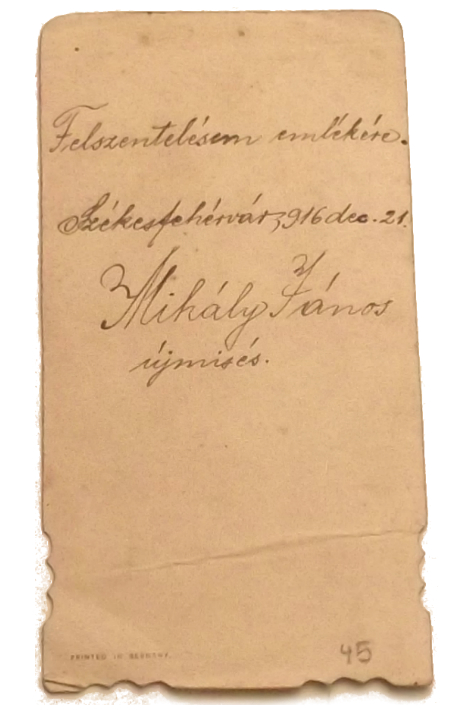 Felszentelésem emlékére.
Székesfehérvár, 916 dec. 21.
Mihály János
újmisés.
PRINTED IN GERMANY.
45